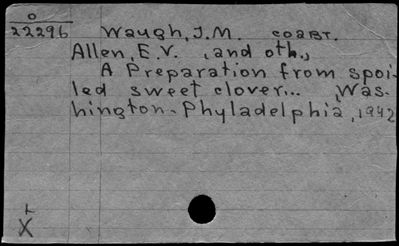 O
22296 Waugh, J.M. соавт.
Allen, E.V. , and oth.,
A Preparation from spoi-
led sweet clover... , Was-
hington-Phyladelphia, 1942
X